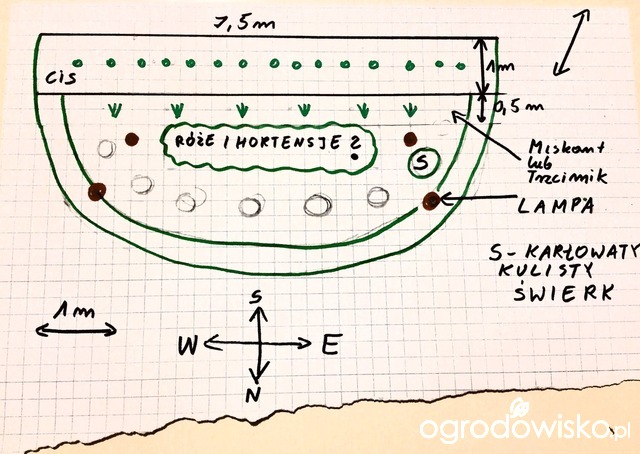 7,5m
cis
1m
0,5m
RÓŻE I HORTENSJE ?
S
Miskant
lub
Trzcinnik
LAMPA
S - KARŁOWATY
KULISTY
ŚWIERK
1m
S
W E
N
ogrodowisko.pl